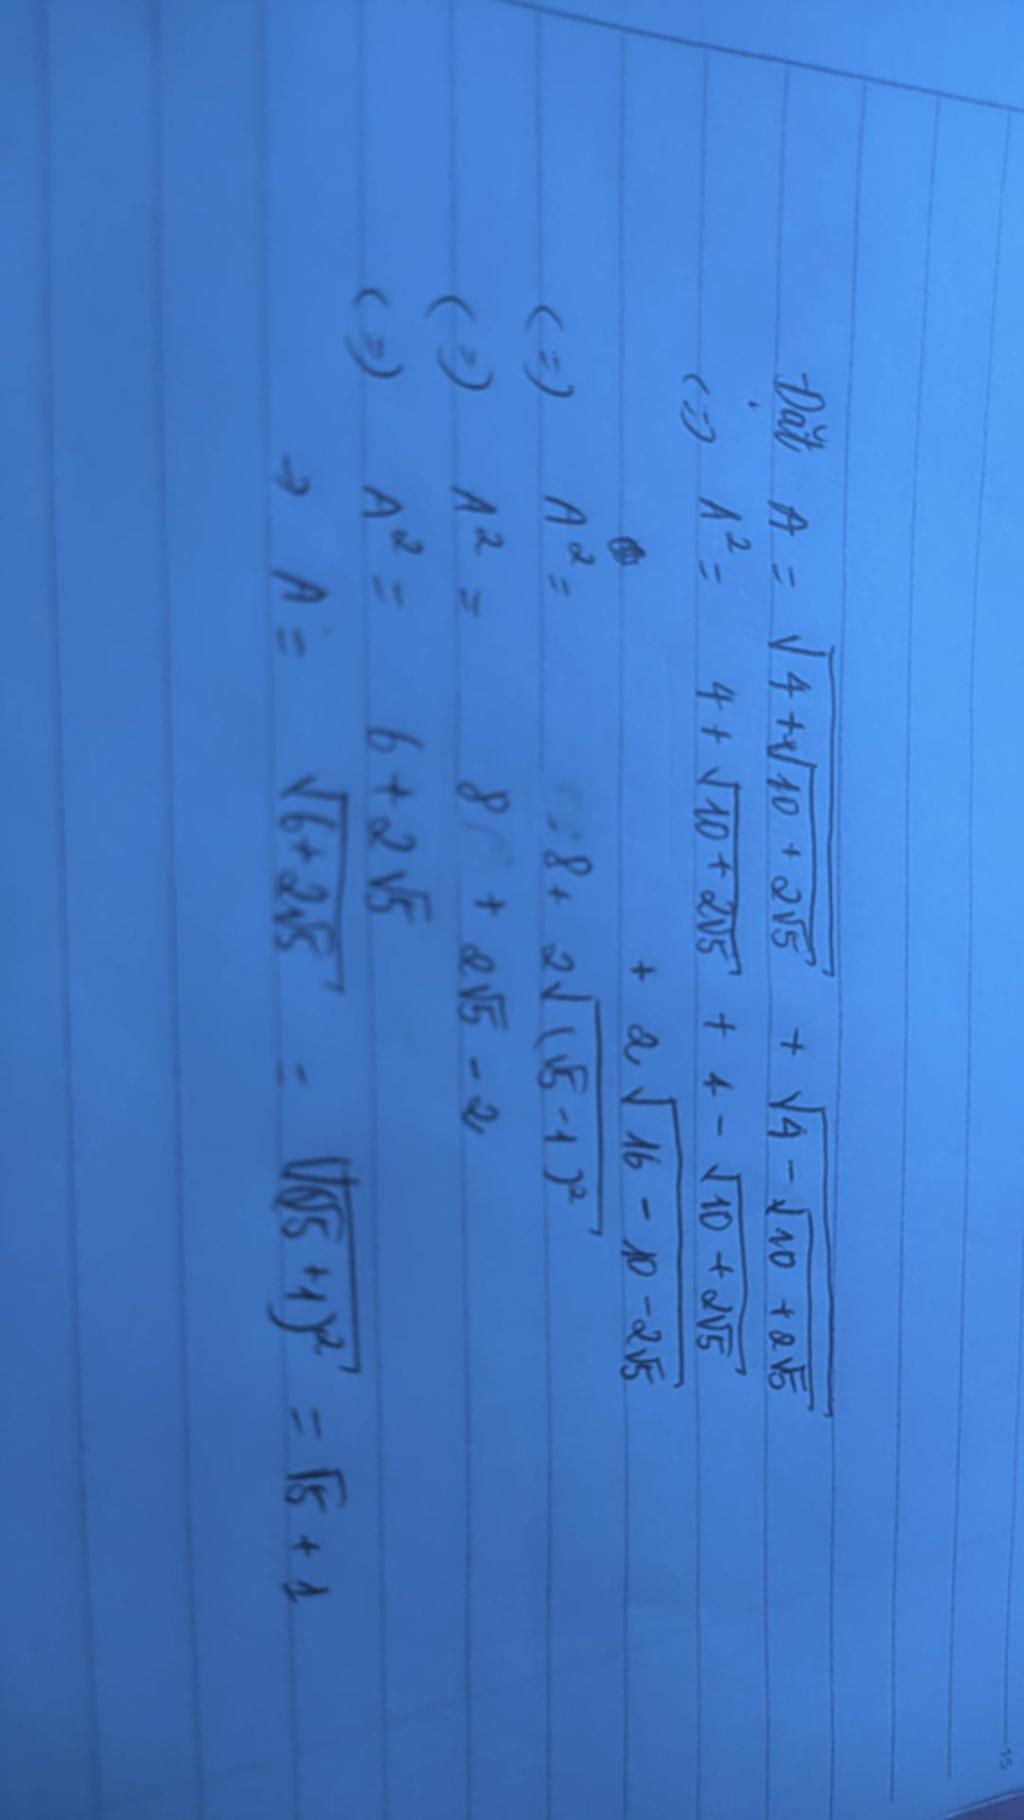 Đặt A = √(4 + √(10 + 2√5)) + √(4 - √(10 + 2√5))
(=) A² = 4 + √(10 + 2√5) + 4 - √(10 + 2√5)
+ 2√(16 - 10 - 2√5)
(=) A² = 8 + 2√((√5 - 1)²)
(=) A² = 8 + 2√5 - 2
(=) A² = 6 + 2√5
→ A = √(6 + 2√5) = √((√5 + 1)²) = √5 + 1
15